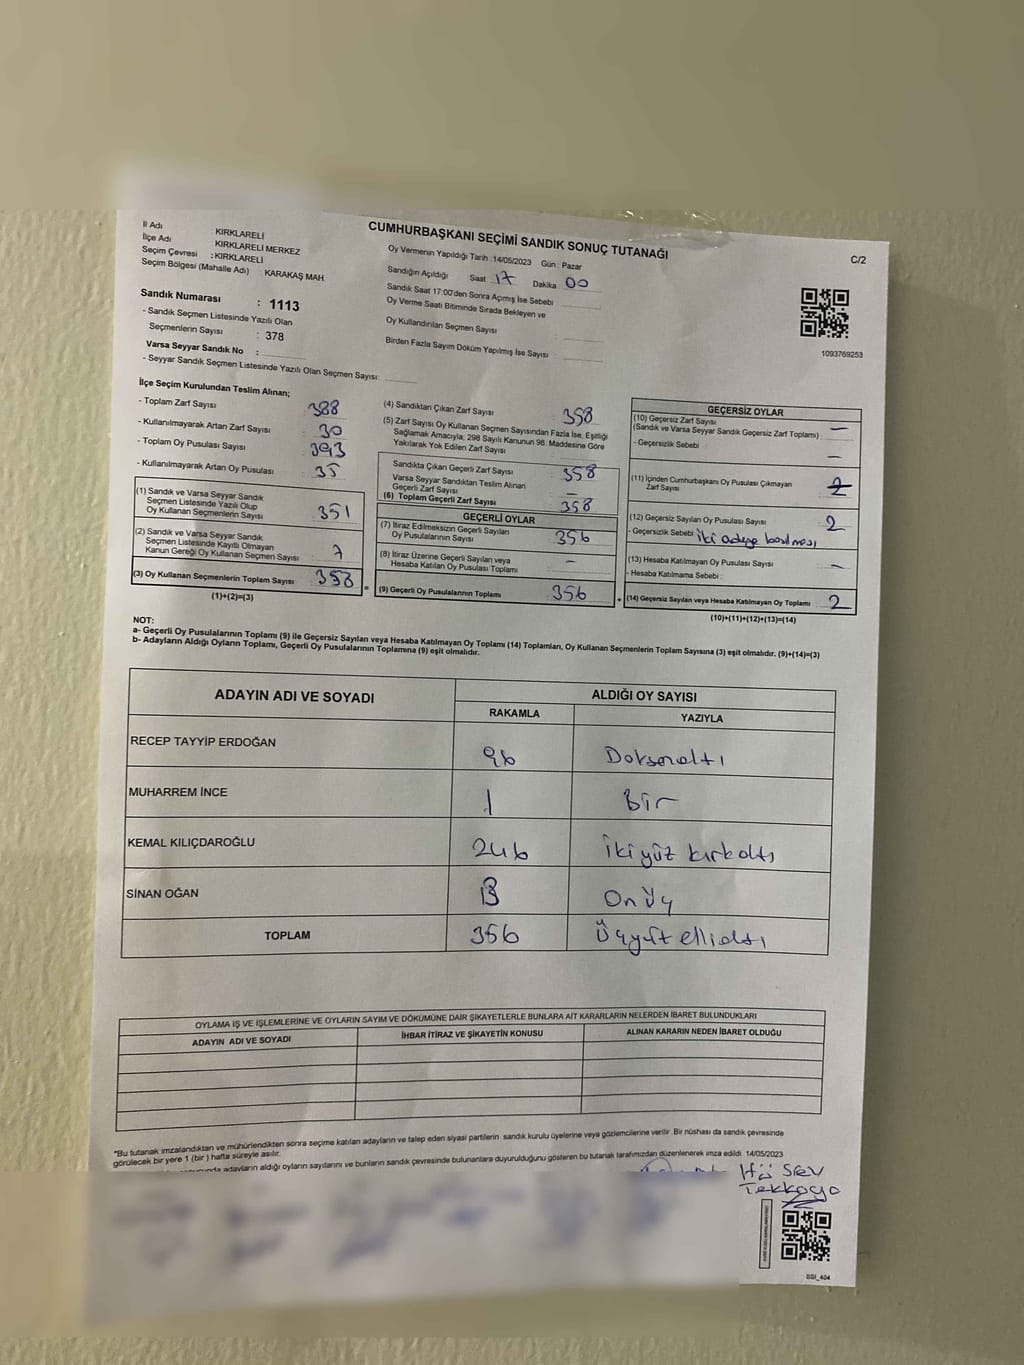 CUMHURBAŞKANI SEÇİMİ SANDIK SONUÇ TUTANAĞI
C/2
İl Adı KIRKLARELİ
İlçe Adı KIRKLARELİ MERKEZ
Seçim Çevresi : KIRKLARELİ
Seçim Bölgesi (Mahalle Adı) KARAKAŞ MAH.
Sandık Numarası : 1113
- Sandık Seçmen Listesinde Yazılı Olan
Seçmenlerin Sayısı : 378
Varsa Seyyar Sandık No :
- Seyyar Sandık Seçmen Listesinde Yazılı Olan Seçmen Sayısı:
Oy Vermenin Yapıldığı Tarih :14/05/2023 Gün : Pazar
Sandığın Açıldığı Saat 17 Dakika : 00
Sandık Saat 17:00'den Sonra Açımış İse Sebebi :
Oy Verme Saati Bitiminde Sırada Bekleyen ve
Oy Kullandırılan Seçmen Sayısı
Birden Fazla Sayım Döküm Yapılmış İse Sayısı :
1093769253
İlçe Seçim Kurulundan Teslim Alınan;
- Toplam Zarf Sayısı : 388
- Kullanılmayarak Artan Zarf Sayısı : 30
- Toplam Oy Pusulası Sayısı : 393
- Kullanılmayarak Artan Oy Pusulası : 35
(1) Sandık ve Varsa Seyyar Sandık
Seçmen Listesinde Yazılı Olup
Oy Kullanan Seçmenlerin Sayısı : 351
(2) Sandık ve Varsa Seyyar Sandık
Seçmen Listesinde Kayıtlı Olmayan
Kanun Gereği Oy Kullanan Seçmen Sayısı : 7
(3) Oy Kullanan Seçmenlerin Toplam Sayısı : 358
(1)+(2)=(3)
=
(4) Sandıktan Çıkan Zarf Sayısı : 358
(5) Zarf Sayısı Oy Kullanan Seçmen Sayısından Fazla İse, Eşitliği
Sağlamak Amacıyla, 298 Sayılı Kanunun 98. Maddesine Göre
Yakılarak Yok Edilen Zarf Sayısı :
Sandıkta Çıkan Geçerli Zarf Sayısı : 358
Varsa Seyyar Sandıktan Teslim Alınan
Geçerli Zarf Sayısı : —
(6) Toplam Geçerli Zarf Sayısı : 358
GEÇERLİ OYLAR
(7) İtiraz Edilmeksizin Geçerli Sayılan
Oy Pusulalarının Sayısı : 356
(8) İtiraz Üzerine Geçerli Sayılan veya
Hesaba Katılan Oy Pusulası Toplamı : —
(9) Geçerli Oy Pusulalarının Toplamı : 356
+
GEÇERSİZ OYLAR
(10) Geçersiz Zarf Sayısı
(Sandık ve Varsa Seyyar Sandık Geçersiz Zarf Toplamı) : —
- Geçersizlik Sebebi : —
(11) İçinden Cumhurbaşkanı Oy Pusulası Çıkmayan
Zarf Sayısı
(12) Geçersiz Sayılan Oy Pusulası Sayısı : 2
- Geçersizlik Sebebi : İki adaya basılması
(13) Hesaba Katılmayan Oy Pusulası Sayısı : —
- Hesaba Katılmama Sebebi :
(14) Geçersiz Sayılan veya Hesaba Katılmayan Oy Toplamı : 2
(10)+(11)+(12)+(13)=(14)
NOT:
a- Geçerli Oy Pusulalarının Toplamı (9) ile Geçersiz Sayılan veya Hesaba Katılmayan Oy Toplamı (14) Toplamları, Oy Kullanan Seçmenlerin Toplam Sayısına (3) eşit olmalıdır. (9)+(14)=(3)
b- Adayların Aldığı Oyların Toplamı, Geçerli Oy Pusulalarının Toplamına (9) eşit olmalıdır.
ADAYIN ADI VE SOYADI ALDIĞI OY SAYISI
RAKAMLA YAZIYLA
RECEP TAYYİP ERDOĞAN 96 Doksanaltı
MUHARREM İNCE 1 Bir
KEMAL KILIÇDAROĞLU 246 İkiyüz kırkaltı
SİNAN OĞAN 13 Onüç
TOPLAM 356 Üçyüzelli altı
OYLAMA İŞ VE İŞLEMLERİNE VE OYLARIN SAYIM VE DÖKÜMÜNE DAİR ŞİKAYETLERLE BUNLARA AİT KARARLARIN NELERDEN İBARET BULUNDUKLARI
ADAYIN ADI VE SOYADI İHBAR İTİRAZ VE ŞİKAYETİN KONUSU ALINAN KARARIN NEDEN İBARET OLDUĞU
*Bu tutanak imzalandıktan ve mühürlendikten sonra seçime katılan adayların ve talep eden siyasi partilerin sandık kurulu üyelerine veya gözlemcilerine verilir. Bir nüshası da sandık çevresinde
görülecek bir yere 1 (bir) hafta süreyle asılır.
adayların aldığı oyların sayılarını ve bunların sandık çevresinde bulunanlara duyurulduğunu gösteren bu tutanak tarafımızdan düzenlenerek imza edildi. 14/05/2023
Hüsrev
Tekkaya
SSI_404